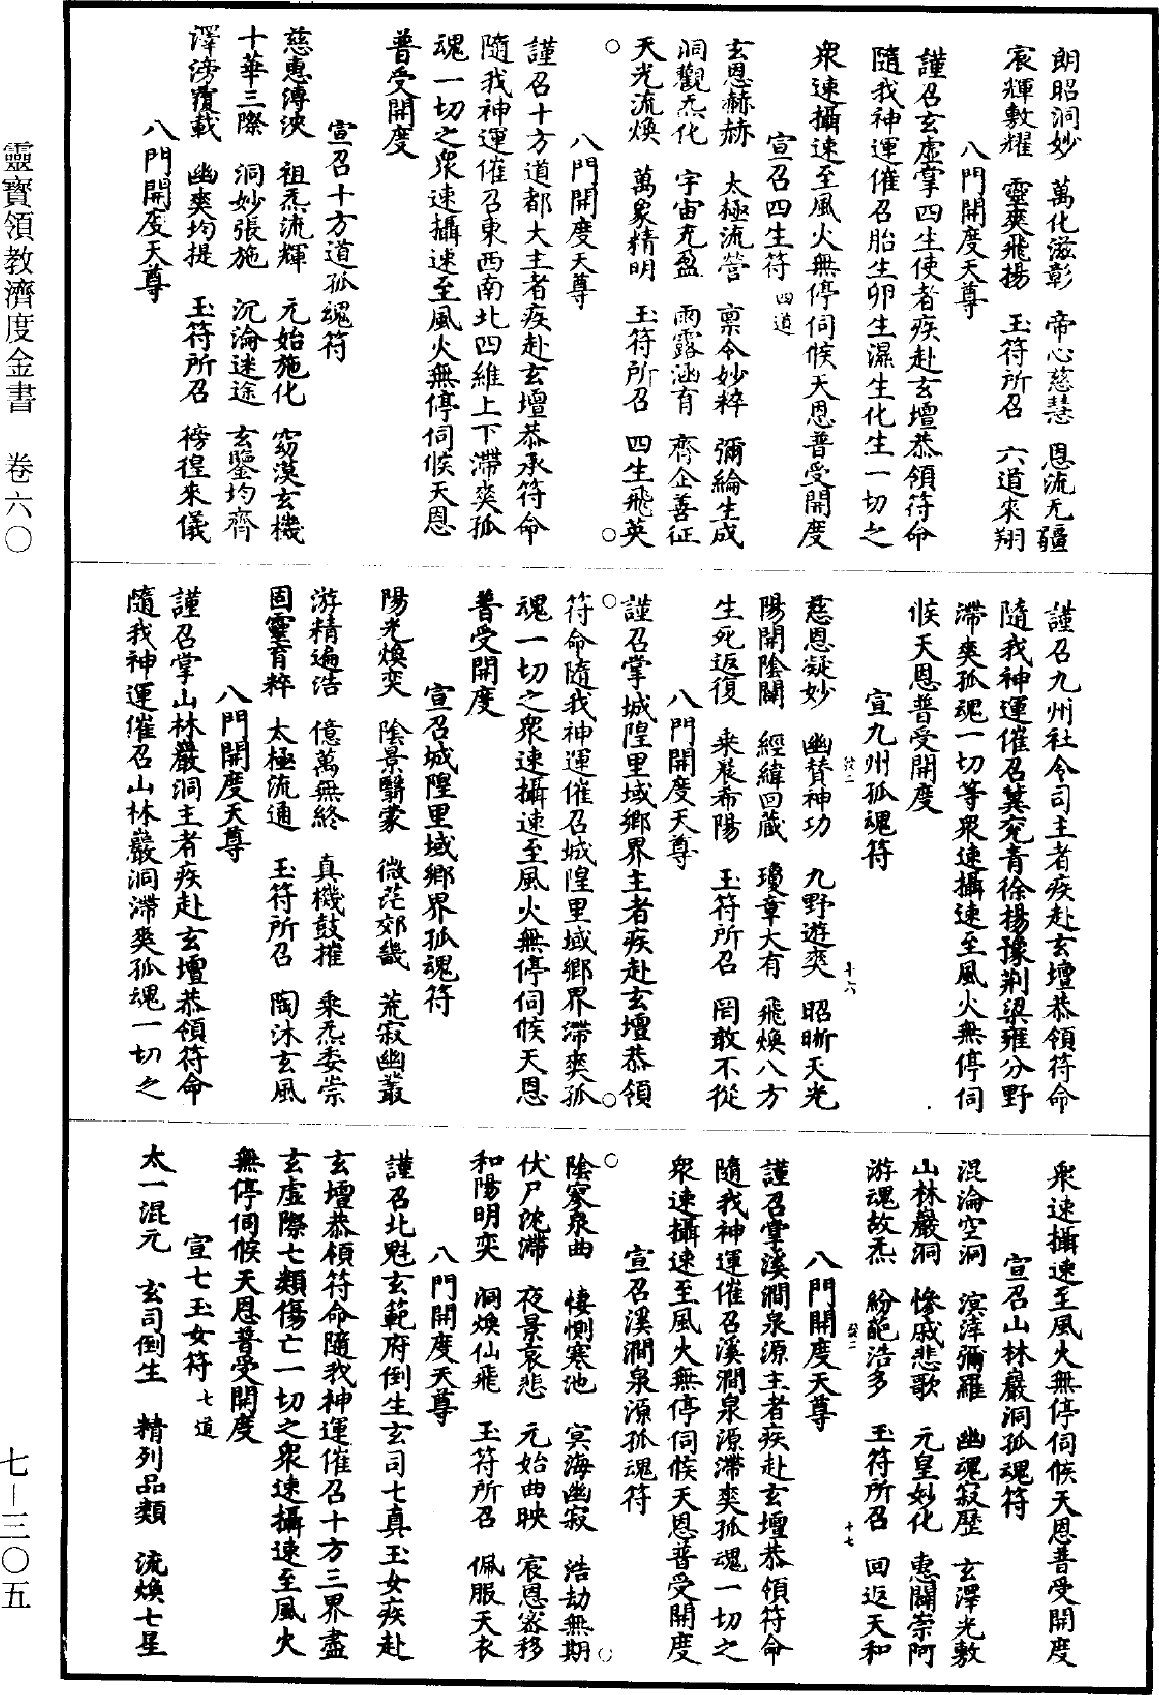 朗昭洞妙　萬化滋彰　帝心慈慧　恩流无疆
宸輝敷耀　靈爽飛揚　玉符所召　六道來翔
八門開度天尊
謹召玄虛掌四生使者疾赴玄壇恭領符命
隨我神運催召胎生卵生濕生化生一切之
眾速攝速至風火無停伺候天恩普受開度
宣召四生符四道
玄恩赫赫　太極流營　稟令妙粹　彌綸生成
洞觀炁化　宇宙充盈　雨露涵育　齊企善征
天光流煥　萬象精明　玉符所召　四生飛英
八門開度天尊
謹召十方道都大主者疾赴玄壇恭承符命
隨我神運催召東西南北四維上下滯爽孤
魂一切之眾速攝速至風火無停伺候天恩
普受開度
宣召十方道孤魂符
慈惠溥決　祖炁流輝　元始施化　窈漠玄機
十華三際　洞妙張施　沉淪迷途　玄鑒均齊
澤滂覆載　幽爽均提　玉符所召　徬徨來儀
八門開度天尊
謹召九州社令司主者疾赴玄壇恭領符命
隨我神運催召冀兗青徐揚豫荊梁雍分野
滯爽孤魂一切等眾速攝速至風火無停伺
候天恩普受開度
宣九州孤魂符
慈恩凝妙　幽贊神功　九野遊爽　昭晰天光
陽開陰闢　經緯回藏　瓊章大有　飛煥八方
生死返復　乘裝希陽　玉符所召　罔敢不從
八門開度天尊
謹召掌城隍里域鄉界主者疾赴玄壇恭領
符命隨我神運催召城隍里域鄉界滯爽孤
魂一切之眾速攝速至風火無停伺候天恩
普受開度
宣召城隍里域鄉界孤魂符
陽光煥奕　陰景翳蒙　微茫郊畿　荒寂幽叢
游精遍浩　億萬無終　真機鼓摧　乘炁委崇
固靈育粹　太極流通　玉符所召　陶沐玄風
八門開度天尊
謹召掌山林巖洞主者疾赴玄壇恭領符命
隨我神運催召山林巖洞滯爽孤魂一切之
眾速攝速至風火無停伺候天恩普受開度
宣召山林巖洞孤魂符
混淪空洞　溟涬彌羅　幽魂寂歷　玄澤光敷
山林巖洞　慘戚悲歌　元皇妙化　惠闢崇阿
游魂故炁　紛葩浩多　玉符所召　回返天和
八門開度天尊
謹召掌溪澗泉源主者疾赴玄壇恭領符命
隨我神運催召溪澗泉源滯爽孤魂一切之
眾速攝速至風火無停伺候天恩普受開度
宣召溪澗泉源孤魂符
陰寥泉曲　悽惻寒池　冥海幽寂　浩劫無期
伏尸沈滯　夜景哀悲　元始曲映　宸恩密移
和陽明奕　洞煥仙飛　玉符所召　佩服天衣
八門開度天尊
謹召北魁玄範府倒生玄司七真玉女疾赴
玄壇恭領符命隨我神運催召十方三界盡
玄虛際七類傷亡一切之眾速攝速至風火
無停伺候天恩普受開度
宣七玉女符七道
太一混元　玄司倒生　精列品類　流煥七星
靈寶領教濟度金書　卷六〇
七—三〇五